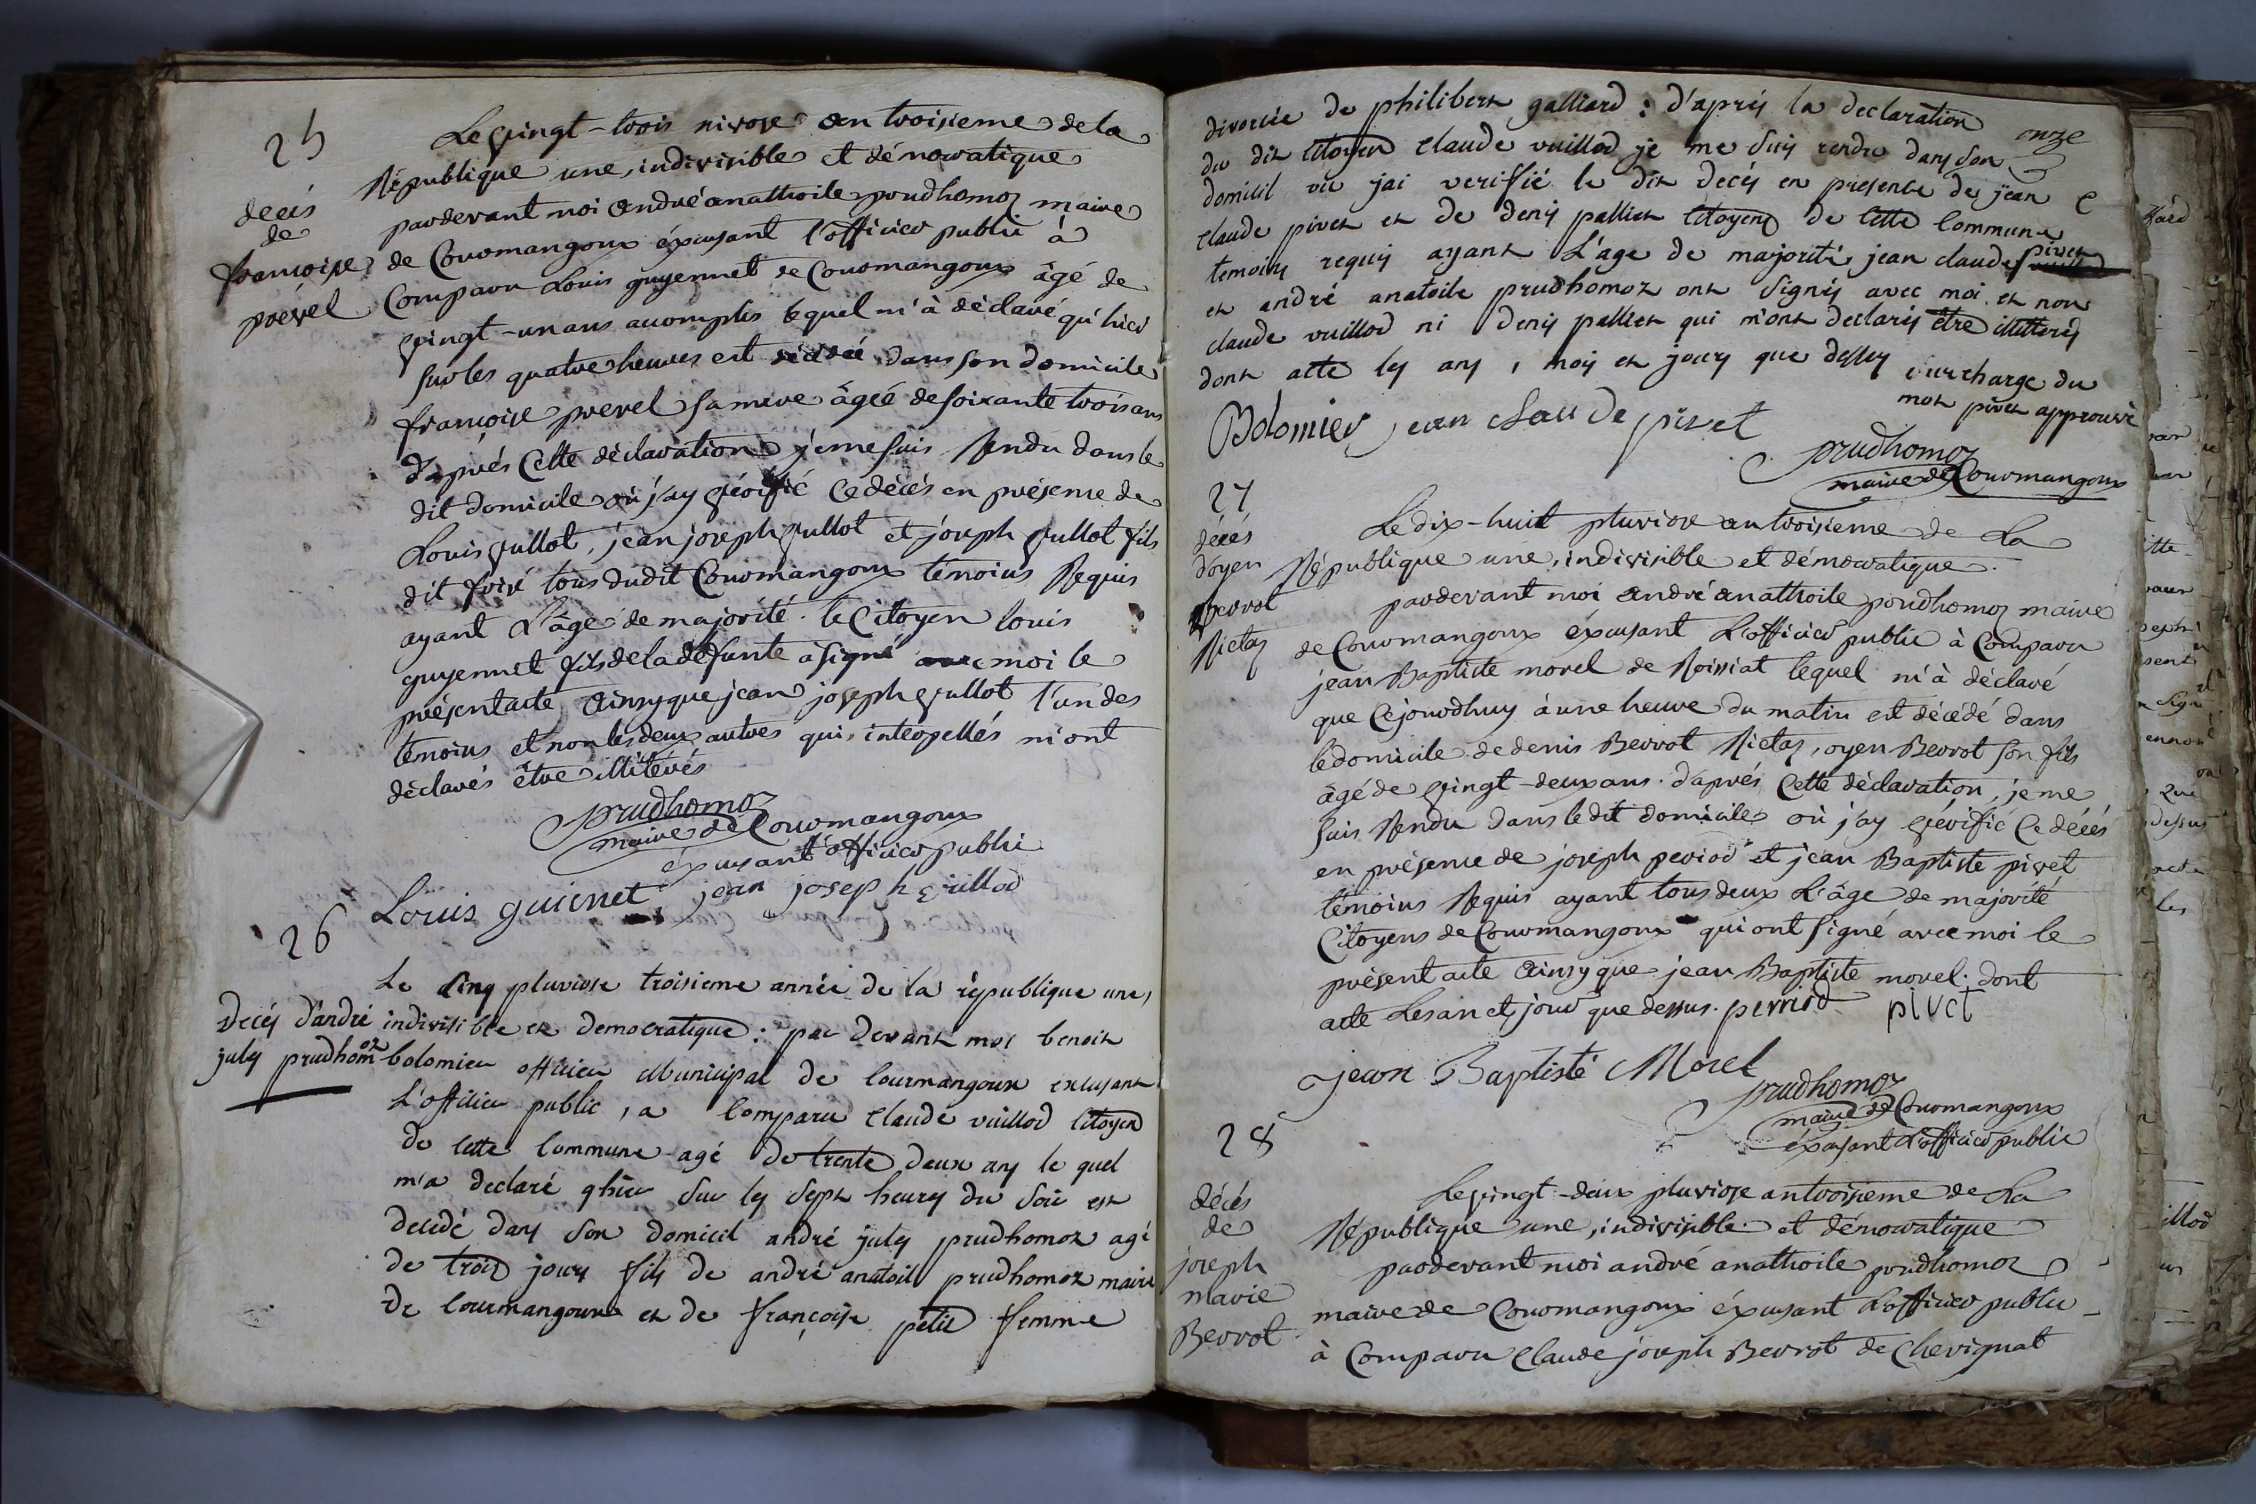 25
décés
de
françoise
prével
Le vingt-trois nivose an troisieme de la
République une, indivisible et démocratique
pardevant moi andré anathoile prudhomoz maire
de Courmangoux éxcusant l'officier public à
Comparu Louis guyennet de Courmangoux âgé de
vingt-un ans accomplis lequel m'à déclaré qu'hier
sur les quatre heures est décédée dans son domicile
françoise prevel sa mere âgée de soixante trois ans
d'aprés Cette déclaration je me suis Rendu dans le
dit domicile où j'ay vérifié Ce décés en présence de
Louis vullot, jean joseph vullot et joseph vullot fils
dit frisé tous dudit Courmangoux témoins Requis
ayant L'âge de majorité. le Citoyen louis
guyennet fils de la défunte a signé avec moi le
présent acte Ainsy que jean joseph vullot l'un des
témoins et non les deux autres qui, interpellés m'ont
déclarés être illitérés
prudhomoz
maire de Courmangoux
éxcusant l'officier public
Louis guienet jean joseph vullod
26
Decés d'andré
jules prudhomoz
Le cinq pluviose troisieme année de la république une,
indivisible et democratique : par devant moi benoit
bolomier officier Municipal de Courmangoux excusant
L'officier public, a Comparu Claude vuillod Citoyen
de cette Commune agé de trente deux ans le quel
m'a declaré qhier sur les sept heures du soir est
decedé dans son domicil andré jules prudhomoz agé
de trois jours fils de andré anatoile prudhomoz maire
de Courmangoux et de françoise petit femme
onze
divorcée de philibert galliard : d'aprés la declaration
du dit Citoyen Claude vuillod je me suis rendu dans son
domicil ou jai verifié le dit decés en presence de jean C
Claude pivet et de denis palliet Citoyens de cette Commune
temoins requis ayant L'age de majorité jean claude pivet
et andré anatoile prudhomoz ont signés avec moi et non
claude vuillod ni denis palliet qui m'ont declarés être illitterés
dont acte les ans, mois et jours que dessus surcharge du
mot pivet approuvé
Bolomier jean Claude pivet
prudhomoz
maire de Courmangoux
27
décés
d'oyen
Berrot
Nictaz
Le dix-huit pluviose an troisieme de La
République une, indivisible et démocratique.
pardevant moi andré anathoile prudhomoz maire
de Courmangoux éxcusant L'officier public à Comparu
jean Baptiste morel de Roissiat lequel m'à déclaré
que Cejourdhuy à une heure du matin est décédé dans
le domicile de denis Berrot Nictaz, oyen Berrot son fils
âgé de vingt-deux ans. d'aprés Cette déclaration, je me
suis Rendu dans le dit domicile où j'ay vérifié Ce décés
en présence de joseph perrod et jean Baptiste pivet
témoins Requis ayant tous deux L'âge de majorité
Citoyens de Courmangoux qui ont signé avec moi le
présent acte Ainsy que jean Baptiste morel. dont
acte Les an et jour que dessus. perrod pivet
jean Baptiste Morel
prudhomoz
maire de Courmangoux
éxcusant L'officier public
28
décés
de
joseph
marie
Berrot
Le vingt-deux pluviose an troisieme de La
République une, indivisible et démocratique
pardevant moi andré anathoile prudhomoz
maire de Courmangoux éxcusant L'officier public
à Comparu Claude joseph Berrot de Chevignat